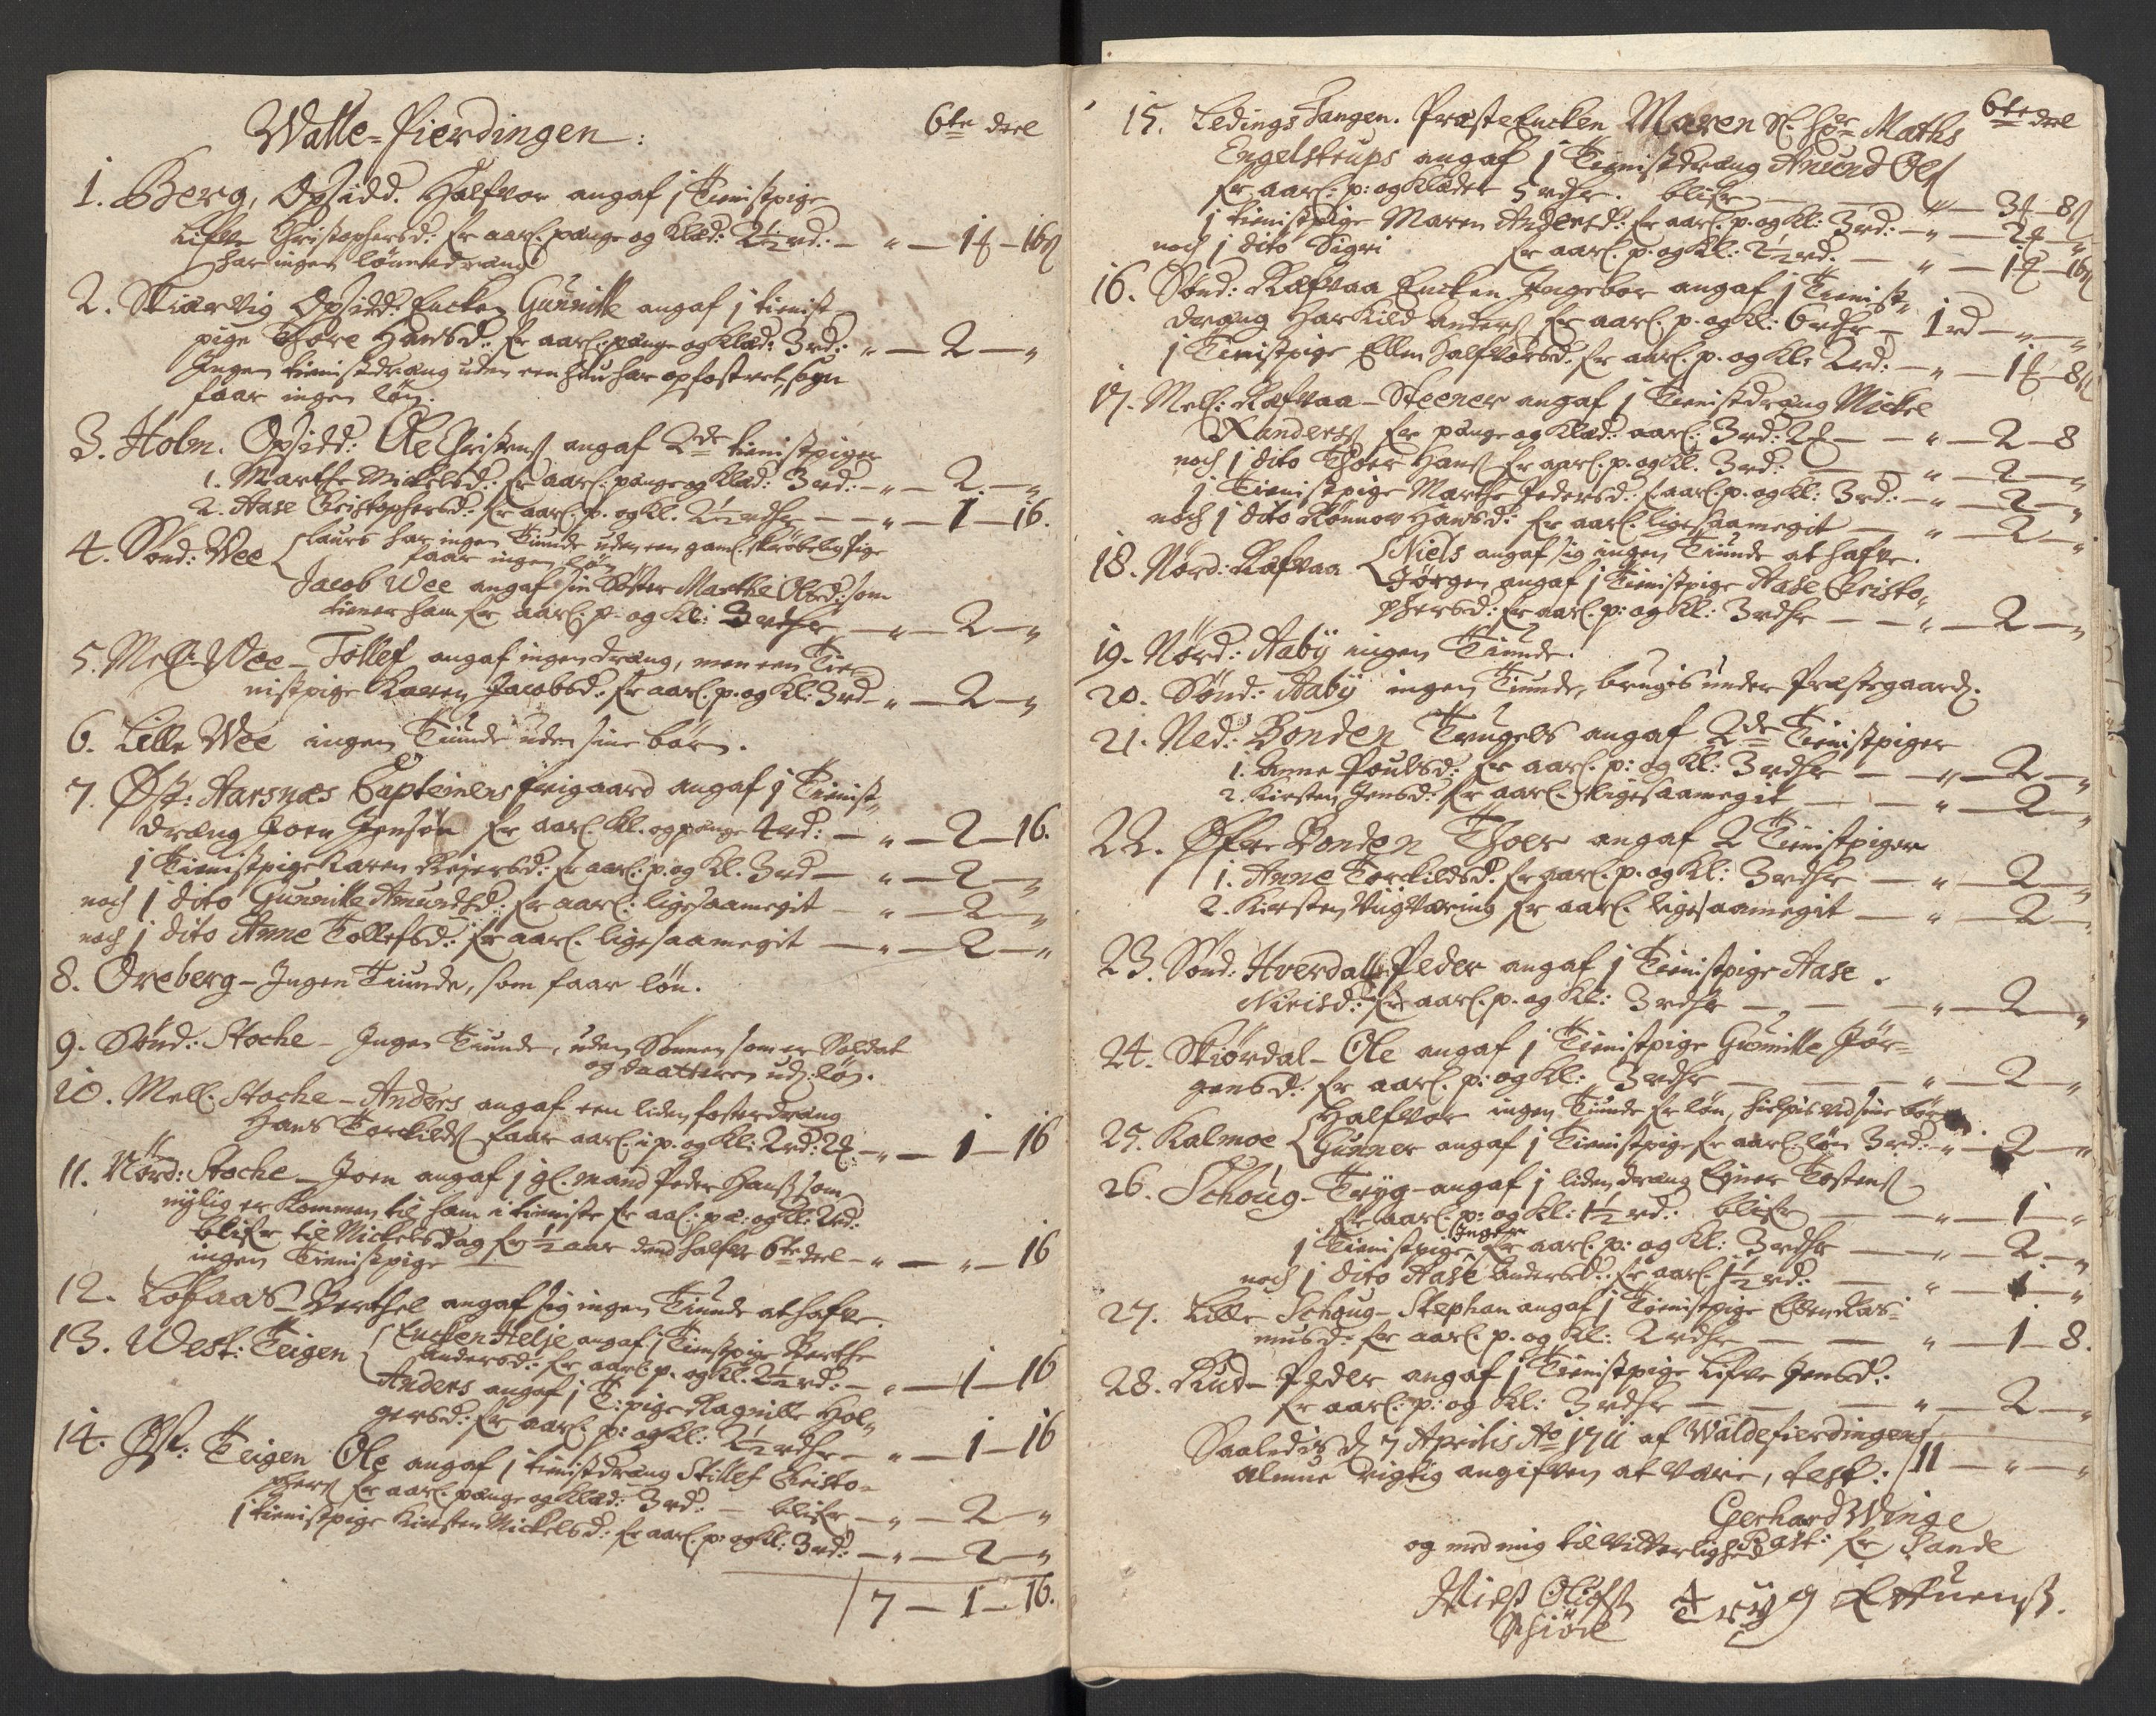 Walle-Fierdingen:
6te deel
1. Berg, Opsidd. Halfvor angaf j Tienistpige
Lifve Christophersd: for aarl: penge og Klæd: 2½ rd: — „ — 1 ₰ — 16 ß
har ingen lönnedreng
2. Skiærvig Opsidd: Encken Gunnille angaf j tienist-
pige Thore Hansd: for aarl: penge og Klæd: 3 rd: „ — 2 — „
Ingen tienistdreng uden een hun har opfostret, som
faar ingen løn.
3. Holm. Opsidd: Ole Christens: angaf 2de tienistpiger
1. Marthe Mickelsd: for aarl: penge og Klæd: 3 rd: — „ — 2 — „
2. Aase Christophersd: for aarl: p. og Kl. 2½ rdlr — „ — 1 — 16.
4. Sønd: Wee Laurs har ingen Tiunde uden een gaml: skrøbelig Pige
faar ingen løn
Jacob Wee angaf sin Søster Marthe Olsd: som
tiener ham for aarl: p: og Kl: 3 rdlr — „ — 2 — „
5. Mell: Wee — Tollef angaf ingen dreng, men een Tie-
nistpige Karen Jacobsd: for aarl: p. og Kl: 3 rd — „ — 2 — „
6. Lille Wee ingen Tiunde uden sine børn.
7. Øst: Aarsnæs Capteinens frigaard angaf j Tienist-
dreng Joen Jensøn for aarl: Kl. og penge 4 rd: — „ — 2 — 16.
j Tienistpige Karen Reiersd: for aarl: p. og Kl. 3 rd — „ — 2 — „
noch j dito Gunnille Amundsd: for aarl: ligesaameget — „ — 2 — „
noch j dito Anne Tollefsd: for aarl: ligesaameget — „ — 2 — „
8. Oreberg — Ingen Tiunde, som faar løn.
9. Sønd: Stoche — Ingen Tiunde, uden Sønnen som er Soldat
og daatteren uden løn.
10. Mell: Stoche — Anders angaf een liden fosterdreng
Hans Torkilds: faar aarl: i p. og Kl: 2 rd: 2 ₰: — „ — 1 — 16
11. Nørd: Stoche — Joen angaf j gl. mand Peder Hanss: som
nylig er kommen til ham i tieniste for aarl: pe: og Kl: 2 rd:
blifr til Mickelsdag for ½ aar dend halfve 6te deel — „ — „ — 16
ingen Tienistpige
12. Løfaas — Berthel angaf sig ingen Tiunde at hafve.
13. West: Teigen Encken Helje angaf j Tienstpige Berthe
Andersd: for aarl: p. og Kl. 2½ rd: — „ — 1 — 16
Anders angaf j T: pige Ragnille Hol-
gersd: for aarl: p: og Kl: 2½ rdlr — „ — 1 — 16
14. Øst: Teigen Ole angaf j tienistdreng Stillef Christo-
phers: for aarl: penge og Klæd: 3 rd: — blifr — „ — 2 — „
j tienistpige Kirsten Mickelsd: for aarl: p: og Kl: 3 rd: — „ — 2 — „
7 — 1 — 16.
6te deel
15. Ledings Tangen. Præste Encken Maren Sl: Hr: Maths
Engelstrups angaf j Tienistdreng Amund Ols:
for aarl: p: og Klæder 5 rdlr. blifr — „ — 3 ₰ — 8 ß
j tienistpige Maren Andersd: for aarl: p. og Kl: 3 rd: — „ — 2 ₰ — „
noch j dito Sigri for aarl: p. og Kl: 2½ rd: — „ — 1 ₰ — 16 ß
16. Sønd: Ræfvaa Encken Ingebor angaf j Tienist-
dreng Har Kild Anders: for aarl: p. og Kl: 6 rdlr — 1 rd — „ — „
j Tienistpige Ellen Halfvorsd: for aarl: p. og Kl: 2 rd: — „ — 1 ₰ — 8 ß
17. Mell: Ræfvaa — Steener angaf j Tienistdreng Mickel
Randers: for penge og Klæd: aarl: 3 rd: 2 ₰ — „ — 2 — 8
noch j dito Thoer Hans: for aarl: p. og Kl. 3 rd: — „ — 2 — „
j Tienistpige Marthe Pedersd: for aarl: p. og Kl: 3 rd: — „ — 2 — „
noch j dito Rønnov Hansd: for aarl: ligesaameget — „ — 2 — „
18. Nørd: Ræfvaa Niels angaf sig ingen Tiunde at hafve.
Jørgen angaf j Tienistpige Aase Christo-
phersd: for aarl: p: og Kl: 3 rdlr — — „ — 2 — „
19. Nørd: Aaby ingen Tiunde.
20. Sønd: Aaby ingen Tiunde, brugis under Præstegaard:
21. Ned: Bonden Trugels angaf 2de Tienistpiger
1. Anne Poulsd: for aarl: p: og Kl: 3 rdlr — „ — 2 — „
2. Kirsten Jensd: for aarl: ligesaameget — — „ — 2 — „
22. Øfr: Bonden Thoer angaf 2 Tienistpiger
1. Anne Torkildsd: for aarl: p. og Kl: 3 rdlr — „ — 2 — „
2. Kirsten for aarl: ligesaameget — „ — 2 — „
23. Sønd: Hverdall Peder angaf j Tienistpige Aase
Nielsd: for aarl: p. og Kl: 3 rdlr — — „ — 2 — „
24. Skiørdal — Ole angaf j Tienistpige Gunnille Jør-
gensd: for aarl: p: og Kl: 3 rdlr — — „ — 2 — „
25. Kalmoe Halfvor ingen Tiunde for løn, hielpis ved sine børn
Gunner angaf j Tienistpige for aarl: løn 3 rd: — „ — 2 — „
26. Schoug — Tryg — angaf j liden dreng Einer Tostens:
for aarl: p: og Kl: 1½ rd: blifr — „ — 1 — „
j Tienistpige Inger for aarl: p: og Kl: 3 rdlr — „ — 2 — „
noch j dito Aase Andersd: for aarl: 1½ rd: — „ — 1 — „
27. Lille Schoug — Stephan angaf j Tienistpige Ellen Ras-
musd: for aarl: p. og Kl: 2 rdlr — — „ — 1 — 8.
28. Rud — Peder angaf j Tienistpige Lifve Jensd:
for aarl: p: og Kl: 3 rdlr — — „ — 2 — „
Saaledis d: 7 Aprilis Ao 1711 af Waldefierdingens
almue rigtig angifven at være, test: 11 — „ — „
Gerhard Winge
Past: for Sande
og med mig til vitterlighed
Niels Olefs:
Schiør
Tryg